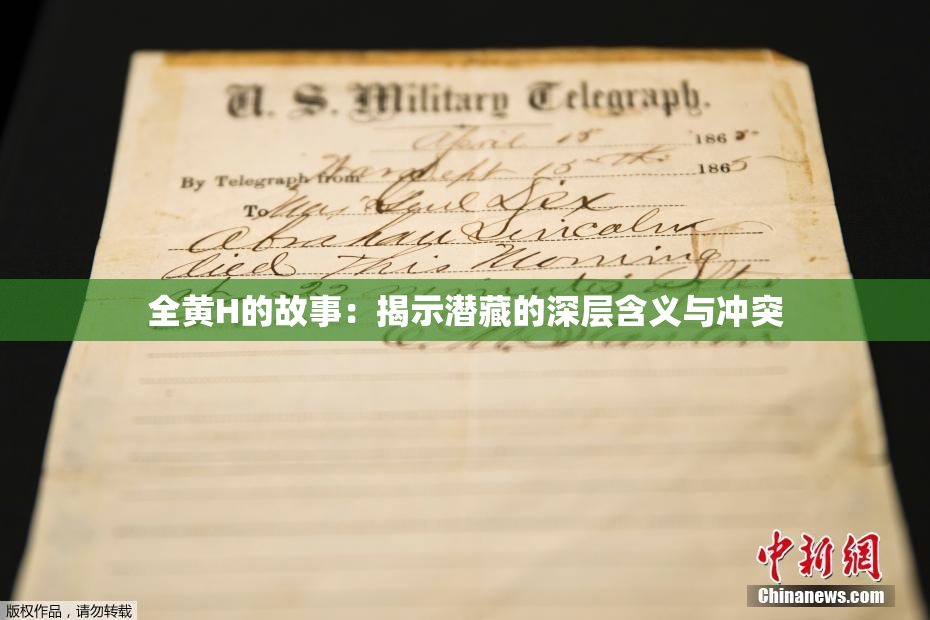 U. S. Military Telegraph.
April 15 1865
By Telegraph from War Dept 15th 1865
To Maj Genl Dix
Abraham Lincoln
died This Morning
at 22 minutes after
全黄H的故事：揭示潜藏的深层含义与冲突
E. M. Stanton
中新网
Chinanews.com
版权作品，请勿转载